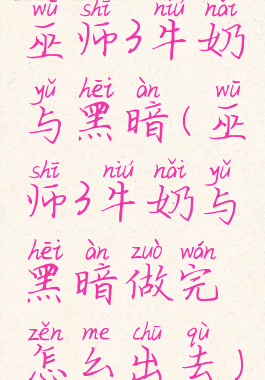 wū shī niú nǎi
巫师3牛奶
yǔ hēi àn wū
与黑暗(巫
shī niú nǎi yǔ
师3牛奶与
hēi àn zuò wán
黑暗做完
zěn me chū qù
怎么出去)